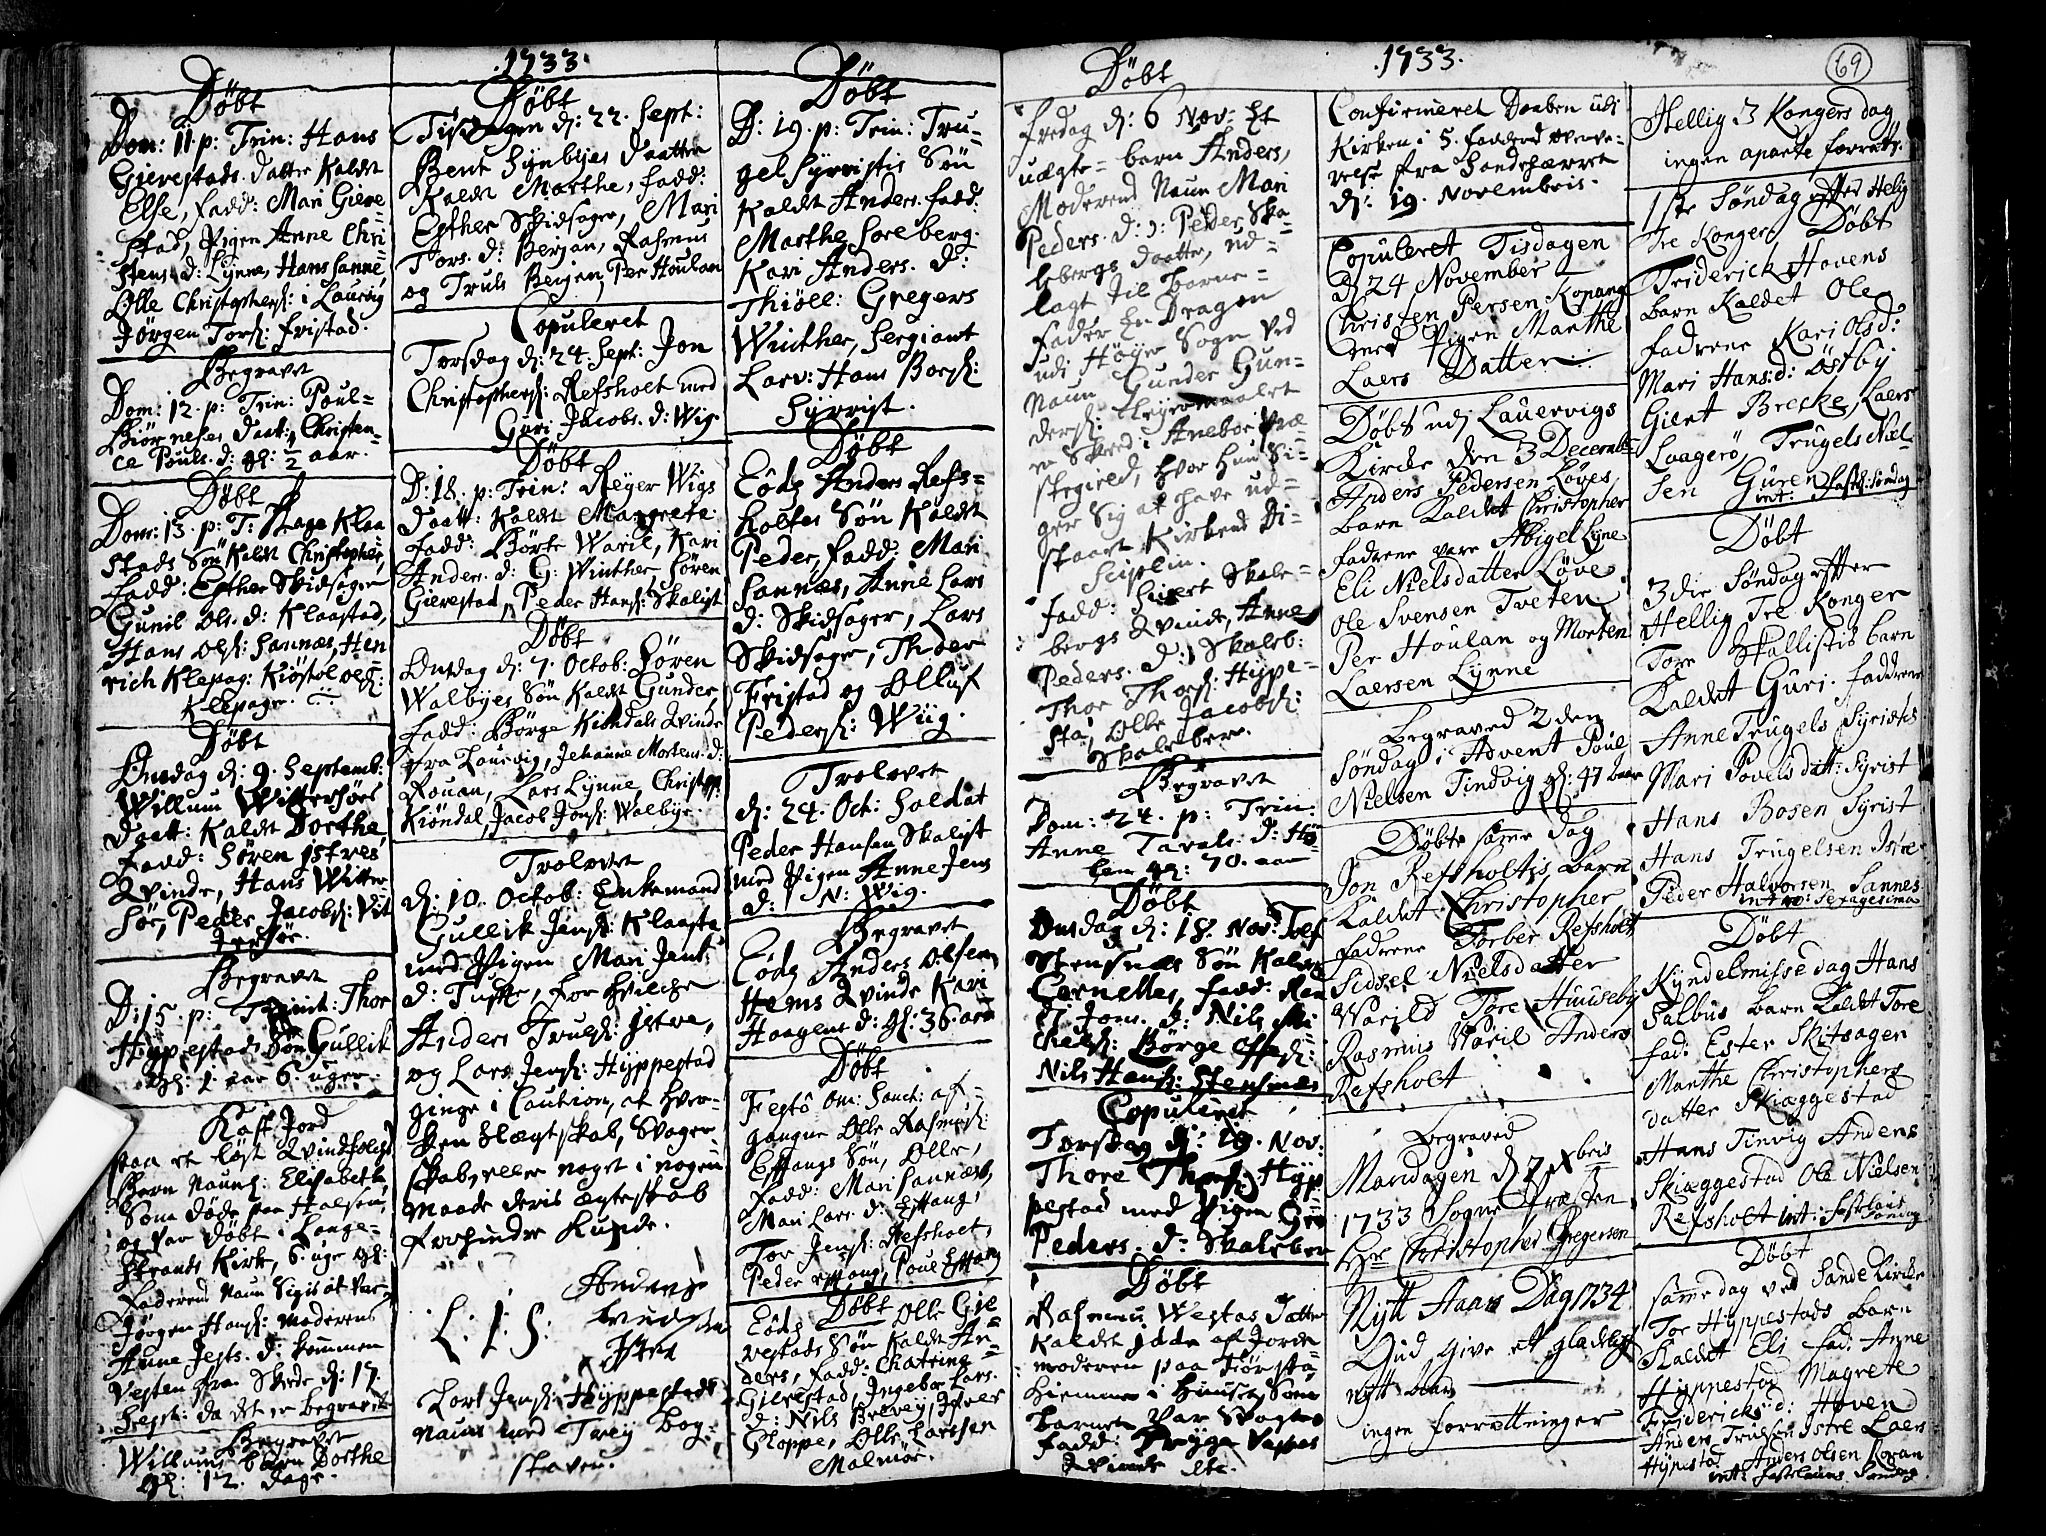 .1733.
Døbt
Dom: 11. p: Trin: Hans
Gierestads datter Kaldet
Else, fadd: Mari Giere-
stad, Pigen Anne Chri
stens. d: Lynne, Hans Sanne,
Olle Christophers: i Laurvig
Jørgen Tors: Fristad.
Begravet
Dom: 12. p: Trin: Poul-
Biørneses daat: Christen-
ce Pouls. d: gl: ½ aar.
Døbt
Dom: 13. p: T: Klaa
stads Søn Kaldt Christopher,
fadd: Esther Skidsager
Gunil Ols. d: Klaastad,
Hans Ols: Sannæs, Hen
rich Klepag: Kiøstol Ols:
Klepage.
Døbt
Onsdag d: 9. Septemb:
Willum Wittersøes
daatt: Kaldt Dorthe,
fadd: Søren Istres
Qvinde, Hans Witter-
søe, Peder Jacobs: Vit
tersøe.
Begravet
D: 15. p: Trinit: Thor
Hyppestads Søn Gullik
gl: 1. aar 6. uger.
Kast Jord
paa et løst Qvindfolchs
Barn Naunl: Elisabeth
Som døde paa Halsen,
og var døbt i Lange-
strands Kirk, 6. uge gl:
Faderens Naun Sigis at var
Jørgen Hans: Moderens
Anne Jesp. d: kommen
Vesten fra Skeede d: 17.
Sept: da det er begravet
Begravet
Willums barn Dorthe
gl: 12. dage.
Døbt
Tisdagen d: 22. Sept:
Bent Synbyes daatter
Kaldt Marthe, fadd:
Esther Skidsager, Mari
Tors. d: Bergan, Rasmus
og Truls Bergen, Per Houlan
Copuleret
Torsdag d: 24. Sept: Jon
Christophers: Refsholt med
Guri Jacobs. d: Wig
Døbt
D: 18. p: Trin: Reyer Wigs
daatt: Kaldt Margrete
fadd: Børte Waril, Kari
Anders. d: G: Winther, Søren
Gierestad, Peder Hans: Skaligst
Døbt
Onsdag d: 7. Octob: Søren
Walbyes Søn Kaldt Gunder,
fadd: Børge Kiøndals Qvinde
fra Laurvig, Johanne Mortens. d:
Rouan, Lars Lynne, Christoph:
Kiøndal, Jacob Jons: Walbye.
Trolovet
d: 10. Octob: Enkemand
Gullik Jens: Klaasta
med Pigen Mari Jens:
d: Tuske, for hvilche
Anders Truls: Istre,
og Lars Jens: Hyppestad
ginge i Caution, at hver-
ken Slægtskab, Svoger-
skab, eller noget i nogen
maade deris ægteskab
forhindre kunde.
L: I: S:
Anders
Istre
Lars Jens: Hyppestads
naun med Trey Bog-
staver.
Døbt
D: 19. p: Trin: Tru-
gel Syrristis Søn
Kaldt Anders. fadd:
Marthe Foreberg.
Kari Anders. d:
Thiøll: Gregers
Winther, Sergiant
Larv: Hans Bors:
Syrrist.
Døbt
Eod: Anders Refs-
holtes Søn Kaldt
Peder, fadd: Mari
Sannes, Anne Lars
d: Skidsager, Lars
Skidsager, Theder
Fristad og Olluf
Peders: Wiig.
Trolovet
d: 24. Oct: Soldat
Peder Hansen Skaligst
med Pigen Anne Jens
d: N: Wig.
Begravet
Eod: Anders Olsen
Hems Qvinde Kari
Haagens d: gl: 36 aar
Døbt
Festo Om: Sanct: af-
gangne Olle Rasmus:
Eftangs Søn, Olle,
fadd: Mari Sannæs,
Mari Lars. d: Eftang,
Tor Jens: Refsholt,
Peder Eftang, Poul Eftang
Døbt
Eod: Olle Gie
restads Søn Kaldt An-
ders, fadd: Chatrine
Gierestad, Ingebor Lars.
d: Nils Brevey, Iffver
Gloppe, Olle Larssen
Malmøe.
.1733.
69
Døbt
Fredag d: 6 Nov: Et
uægte- barn Anders,
Moderens Naun Mari
Peders. d: Peder Ska
lebergs daatter, ud-
lagt til barne-
fader En Dragon
udi Høyer Sogn ved
Naun Gunder Gun-
ders: leyermaalet
er Skeed i Anebøe Præ
stegield, hvor hun Si-
ger Sig at have ud-
staaet Kirkens Di-
sciplin.
fadd: Sivert Skale-
bergs Qvinde, Anne
Peders. d: Skaleb:
Thor Thors: Hyppe-
sta, Olle Jacobs:
Skaleberg.
Begravet
Dom: 24. p: Trin:
Anne Tarals. d: Hø
ben gl: 70. aar
Døbt
Onsdag d: 18. Nov: Tolf
Stensnes Søn Kaldt
Cornelles, fadd: Ran
di Jom. d: Nils Mi
chels: Børge
Nils Hans: Stensnæs
Copuleret
Torsdag d: 19. Nov:
Thore Thors: Hyp
pestad med Pigen Gro
Peders. d: Skaleberg
Døbt
Rasmus Westas datter
Kaldet Jda af Jorde-
moderen paa Tiørstå
hiemme i huuset Som
barnet var Svagt
fadd: Trygve Vestas
Qvinde etc.
Confirmeret Daaben udi
Kirken i 5. fadders overvæ-
relse fra Sandehærret
d: 19. Novembris.
Copuleret Tisdagen
d 24 November
Christen Persen Kopang
med Pigen Marthe
Laers Datter
Døbt udj Lauervigs
Kircke den 3 Decemb:
Anders Pedersen Løves
barn kaldet Christopher
fadrene vare Abigel Lyne
Eli Nielsdatter Løve
Ole Svensen Tveten
Per Houlan og Morten
Laersen Lynne
Begraved 2 den
Søndag i Advent Poul
Nielsen Tindvig gl: 47 aar
Døbte same dag
Jon Refsholtis barn
Kaldet Christopher
fadrene Torber Refsholt
Sidsel Nielsdatter
Warild Tore Huuseby
Rasmus Waril Anders
Refsholt
Begraved
Mandagen d 7 Xbris
1733 Sogne Præsten
Hr Christopher Gregersen
Nytt Aars Dag 1734
Gud give et glædeligt
nytt aar
ingen forrettninger
Hellig 3 Kongers dag
ingen aparte forretn:
1ste Søndag effter Hellig
Tre Konger Døbt
Friderick Hovens
barn Kaldet Ole
fadrene Kari Olsd:
Mari Hans: d: Østby
Giert Brecke, Laers
Laagerø, Trugels Niel
sen Guren
int: Fastel: Søndag
Døbt
3die Søndag effter
Hellig Tre Konger
Tore Skallistis barn
Kaldet Guri. faddrene
Anne Trugels Syristis
Mari Povels datt: Syrist
Hans Bosen Syrist
Hans Trugelsen Istre
Peder Halvorsen Sannes
intro: Sexagesima
Døbt
Kyndelmisse dag Hans
Salbus barn Kaldet Tore
fad: Ester Skitsager
Marthe Christophers
datter Skiæggestad
Hans Tinvig Anders
Skiæggestad Ole Nielsen
Refsholt int: Fastelauns
Søndag
Døbt
samme dag ved Sande Kircke
Tor Hyppestads barn
Kaldet Eli fad: Anne
Hyppestad Magrete
Fridericks d: Hoven
Anders Trulsen Istre Laers
Hypestad Anders Olsen Rovan
int: Fastelauns Søndag